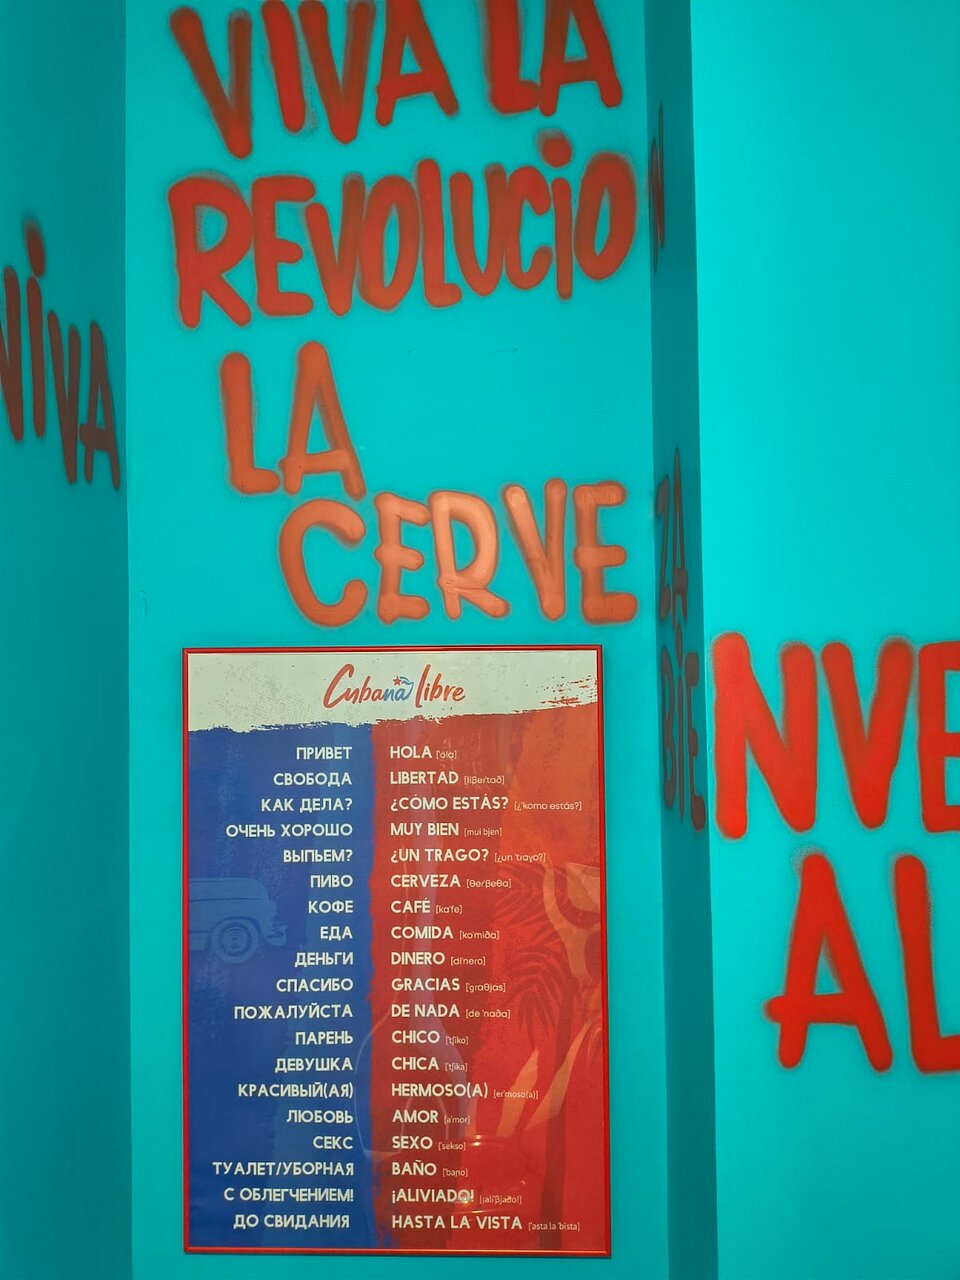 VIVA LA
REVOLUCIO
N
VIVA
LA
CERVE
ZA
BIE
NVE
AL
Cubana libre
ПРИВЕТ HOLA ['ola]
СВОБОДА LIBERTAD [liβer'tað]
КАК ДЕЛА? ¿CÓMO ESTÁS? [¿'komo estás?]
ОЧЕНЬ ХОРОШО MUY BIEN [mui bjen]
ВЫПЬЕМ? ¿UN TRAGO? [¿un 'traγo?]
ПИВО CERVEZA [θer'βeθa]
КОФЕ CAFÉ [ka'fe]
ЕДА COMIDA [ko'miða]
ДЕНЬГИ DINERO [di'nero]
СПАСИБО GRACIAS ['graθjas]
ПОЖАЛУЙСТА DE NADA [de 'naða]
ПАРЕНЬ CHICO ['tʃiko]
ДЕВУШКА CHICA ['tʃika]
КРАСИВЫЙ(АЯ) HERMOSO(A) [er'moso(a)]
ЛЮБОВЬ AMOR [a'mor]
СЕКС SEXO ['sekso]
ТУАЛЕТ/УБОРНАЯ BAÑO ['baɲo]
С ОБЛЕГЧЕНИЕМ! ¡ALIVIADO! [¡ali'βjaðo!]
ДО СВИДАНИЯ HASTA LA VISTA ['asta la 'bista]